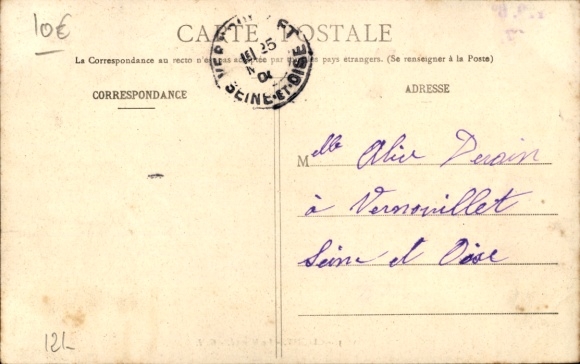 10€
CARTE POSTALE
La Correspondance au recto n'est pas acceptée par tous les pays etrangers. (Se renseigner à la Poste)
CORRESPONDANCE
ADRESSE
25
04
SEINE-ET-OISE
Melle Alice Derain
à Vernouillet
Seine et Oise
12L